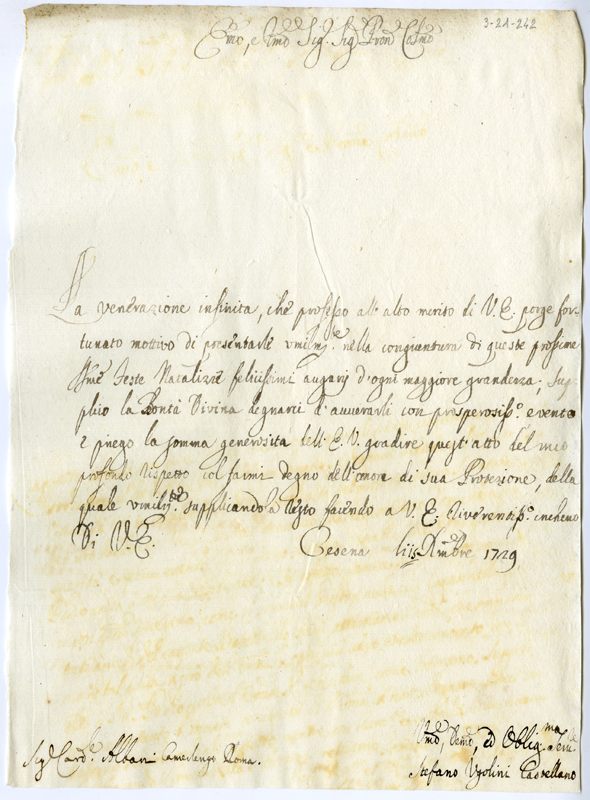 3-21-242
Emo, e Rmo Sig.r Sig.r Pron Colmo
La venerazione infinita, che professo all'alto merito di V. E. porge for-
tunato mottivo di presentarle vmilm.te nella congiuntura di queste prossime
SSme Feste Natalizie felicissimi augurij d'ogni maggiore grandezza; Sup-
plico la Bontà Divina degnarci d'avverarli con prosperosiss.o evento
e priego la somma generosita dell'E. V. gradire quest'atto del mio
profondo rispetto col farmi degno dell'onore di sua Protezione, della
quale vmiliss.te supplicandola resto facendo a V. E. riverentiss.o inchino
Di V. E. Cesena li Xmbre 1729
Vmo, Devmo, ed Oblig.mo Serv.e
Sig.r Card.le Albani Camerlengo Roma. Stefano Vgolini Castellano